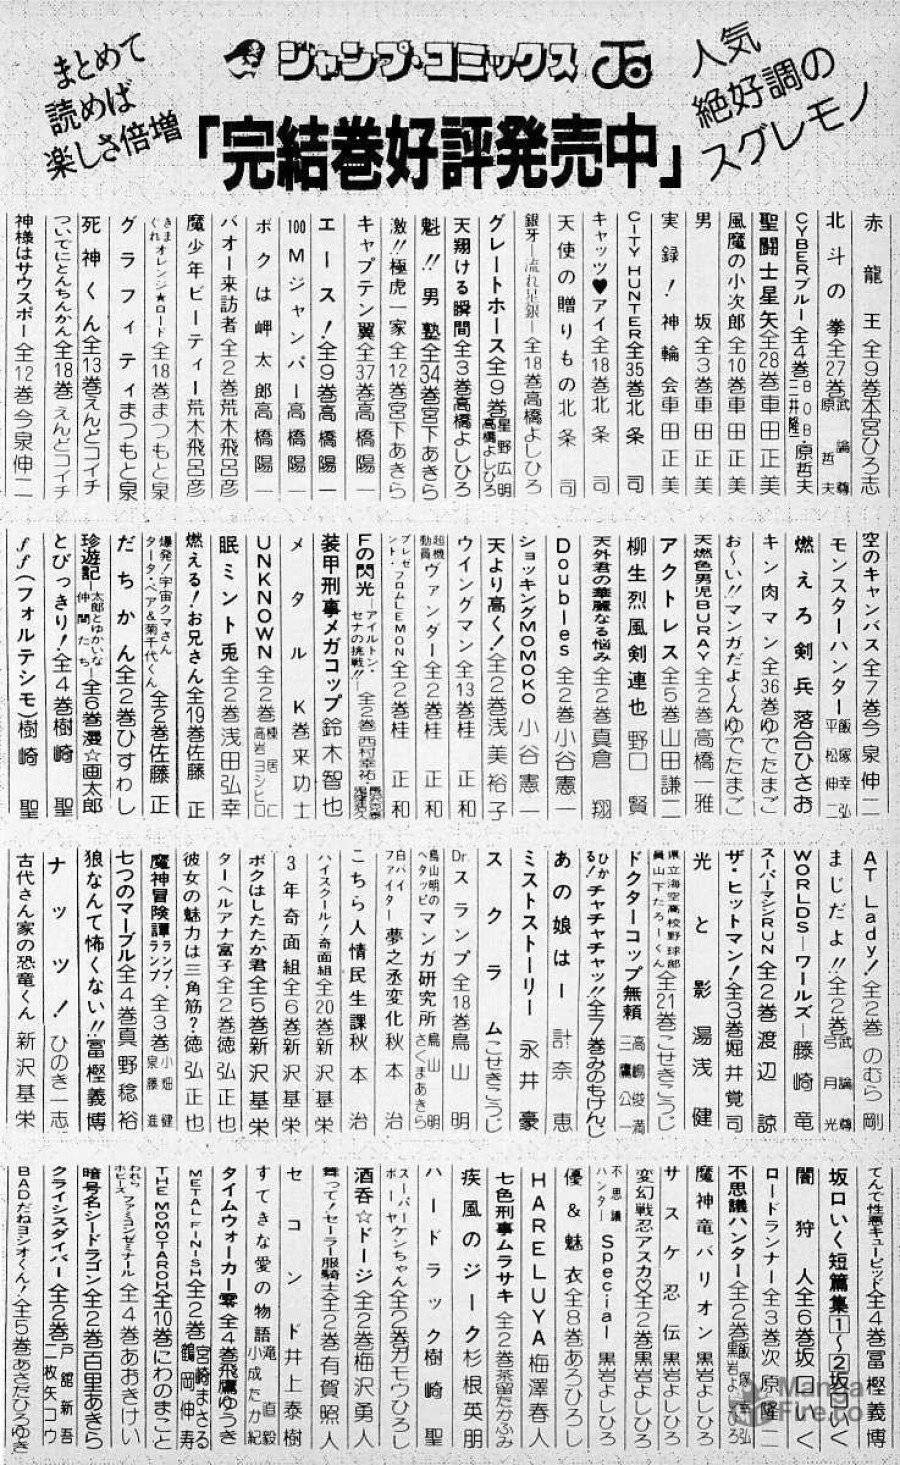 まとめて
読めば
楽しさ倍増
ジャンプ・コミックス
人気
絶好調の
スグレモノ
「完結巻好評発売中」
赤龍王 全9巻 本宮ひろ志
北斗の拳 全27巻 武論尊 原哲夫
CYBERブルー 全4巻 BOB・原哲夫 三井隆一
聖闘士星矢 全28巻 車田正美
風魔の小次郎 全10巻 車田正美
男坂 全3巻 車田正美
実録!神輪会 車田正美
CITY HUNTER 全35巻 北条司
キャッツ♥アイ 全18巻 北条司
天使の贈りもの 北条司
銀牙―流れ星銀 全18巻 高橋よしひろ
グレートホース 全9巻 星野広明 高橋よしひろ
天翔ける瞬間 全3巻 高橋よしひろ
魁!!男塾 全34巻 宮下あきら
激!!極虎一家 全12巻 宮下あきら
キャプテン翼 全37巻 高橋陽一
エース! 全9巻 高橋陽一
100Mジャンパー 高橋陽一
ボクは岬太郎 高橋陽一
バオー来訪者 全2巻 荒木飛呂彦
魔少年ビーティー 荒木飛呂彦
きまぐれオレンジ★ロード 全18巻 まつもと泉
グラフィティ まつもと泉
死神くん 全13巻 えんどコイチ
ついでにとんちんかん 全18巻 えんどコイチ
神様はサウスポー 全12巻 今泉伸二
空のキャンバス 全7巻 今泉伸二
モンスターハンター 飯塚幸弘 平松伸二
燃えろ剣兵 落合ひさお
キン肉マン 全36巻 ゆでたまご
お〜い!!マンガだよ〜ん ゆでたまご
天燃色男児BURAY 全2巻 高橋一雅
アクトレス 全5巻 山田謙二
柳生烈風剣連也 野口賢
天外君の華麗なる悩み 全2巻 真倉翔
Doubles 全2巻 小谷憲一
ショッキングMOMOKO 小谷憲一
天より高く! 全2巻 浅美裕子
ウイングマン 全13巻 桂正和
超機動員ヴァンダー 全2巻 桂正和
プレゼント・フロムLEMON 全2巻 桂正和
Fの閃光 アイルトン・セナの挑戦!! 全2巻 西村幸祐
装甲刑事メガコップ 鈴木智也
メタルK 巻来功士
UNKNOWN 全2巻 棟居仁 高岩ヨシヒロ
眠兎 ミント 全2巻 浅田弘幸
燃える!お兄さん 全19巻 佐藤正
爆発!宇宙クマさん タータ・ベア&菊千代くん 全2巻 佐藤正
だちかん 全2巻 ひすわし
珍遊記―太郎とゆかいな仲間たち― 全6巻 漫☆画太郎
とびっきり! 全4巻 樹崎聖
ff(フォルテシモ) 樹崎聖
AT Lady! 全2巻 のむら剛
まじだよ!! 全2巻 武論尊 弓月光
WORLDS―ワールズ― 藤崎竜
スーパーマシンRUN 全2巻 渡辺諒
ザ・ヒットマン! 全3巻 堀井覚司
光と影 湯浅健
県立海空高校野球部員山下たろーくん 全21巻 こせきこうじ
ドクターコップ無頼 高嶋俊満 三鷹公一
ひかる!チャチャチャッ!! 全7巻 みのもけんじ
あの娘はー 計奈恵
ミストストーリー 永井豪
スクラム こせきこうじ
Drスランプ 全18巻 鳥山明
鳥山明のヘタッピマンガ研究所 鳥山明 さくまあきら
白バイファイター夢之丞変化 秋本治
こちら人情民生課 秋本治
ハイスクール!奇面組 全20巻 新沢基栄
3年奇面組 全6巻 新沢基栄
ボクはしたたか君 全5巻 新沢基栄
ターヘルアナ富子 全2巻 徳弘正也
彼女の魅力は三角筋? 徳弘正也
魔神冒険譚ランプ・ランプ 全3巻 小畑健 泉藤進
七つのマーブル 全4巻 真野稔裕
狼なんて怖くない!! 冨樫義博
ナッツ! ひのき一志
古代さん家の恐竜くん 新沢基栄
てんで性悪キューピッド 全4巻 冨樫義博
坂口いく短篇集1〜2 坂口いく
闇狩人 全6巻 坂口いく
ロードランナー 全3巻 次原隆二
不思議ハンター 全2巻 飯塚幸弘 黒岩よしひろ
魔神竜バリオン 黒岩よしひろ
サスケ忍伝 黒岩よしひろ
変幻戦忍アスカ♡ 全2巻 黒岩よしひろ
不思議ハンターSpecial 黒岩よしひろ
優&魅衣 全8巻 あろひろし
HARELUYA 梅澤春人
七色刑事ムラサキ 全2巻 茶留たかふみ
疾風のジーク 杉根英朋
ハードラック 樹崎聖
スーパーボーイケンちゃん 全2巻 ガモウひろし
酒呑☆ドージ 全2巻 梅沢勇人
舞って!セーラー服騎士 全2巻 有賀照人
セコンド 井上泰樹
すてきな愛の物語 滝直毅 小成たか紀
タイムウォーカー零 全4巻 飛鷹ゆうき
METAL FINISH 全2巻 宮崎まさる 鶴岡伸寿
THE MOMOTAROH 全10巻 にわのまこと
われらホビーズ ファミコンゼミナール 全4巻 あおきけい
暗号名シードラゴン 全2巻 百里あきら
クライシスダイバー 全2巻 戸舘新吾 二枚矢コウ
BADだねヨシオくん! 全5巻 あさだひろゆき
Manga
Fire.to